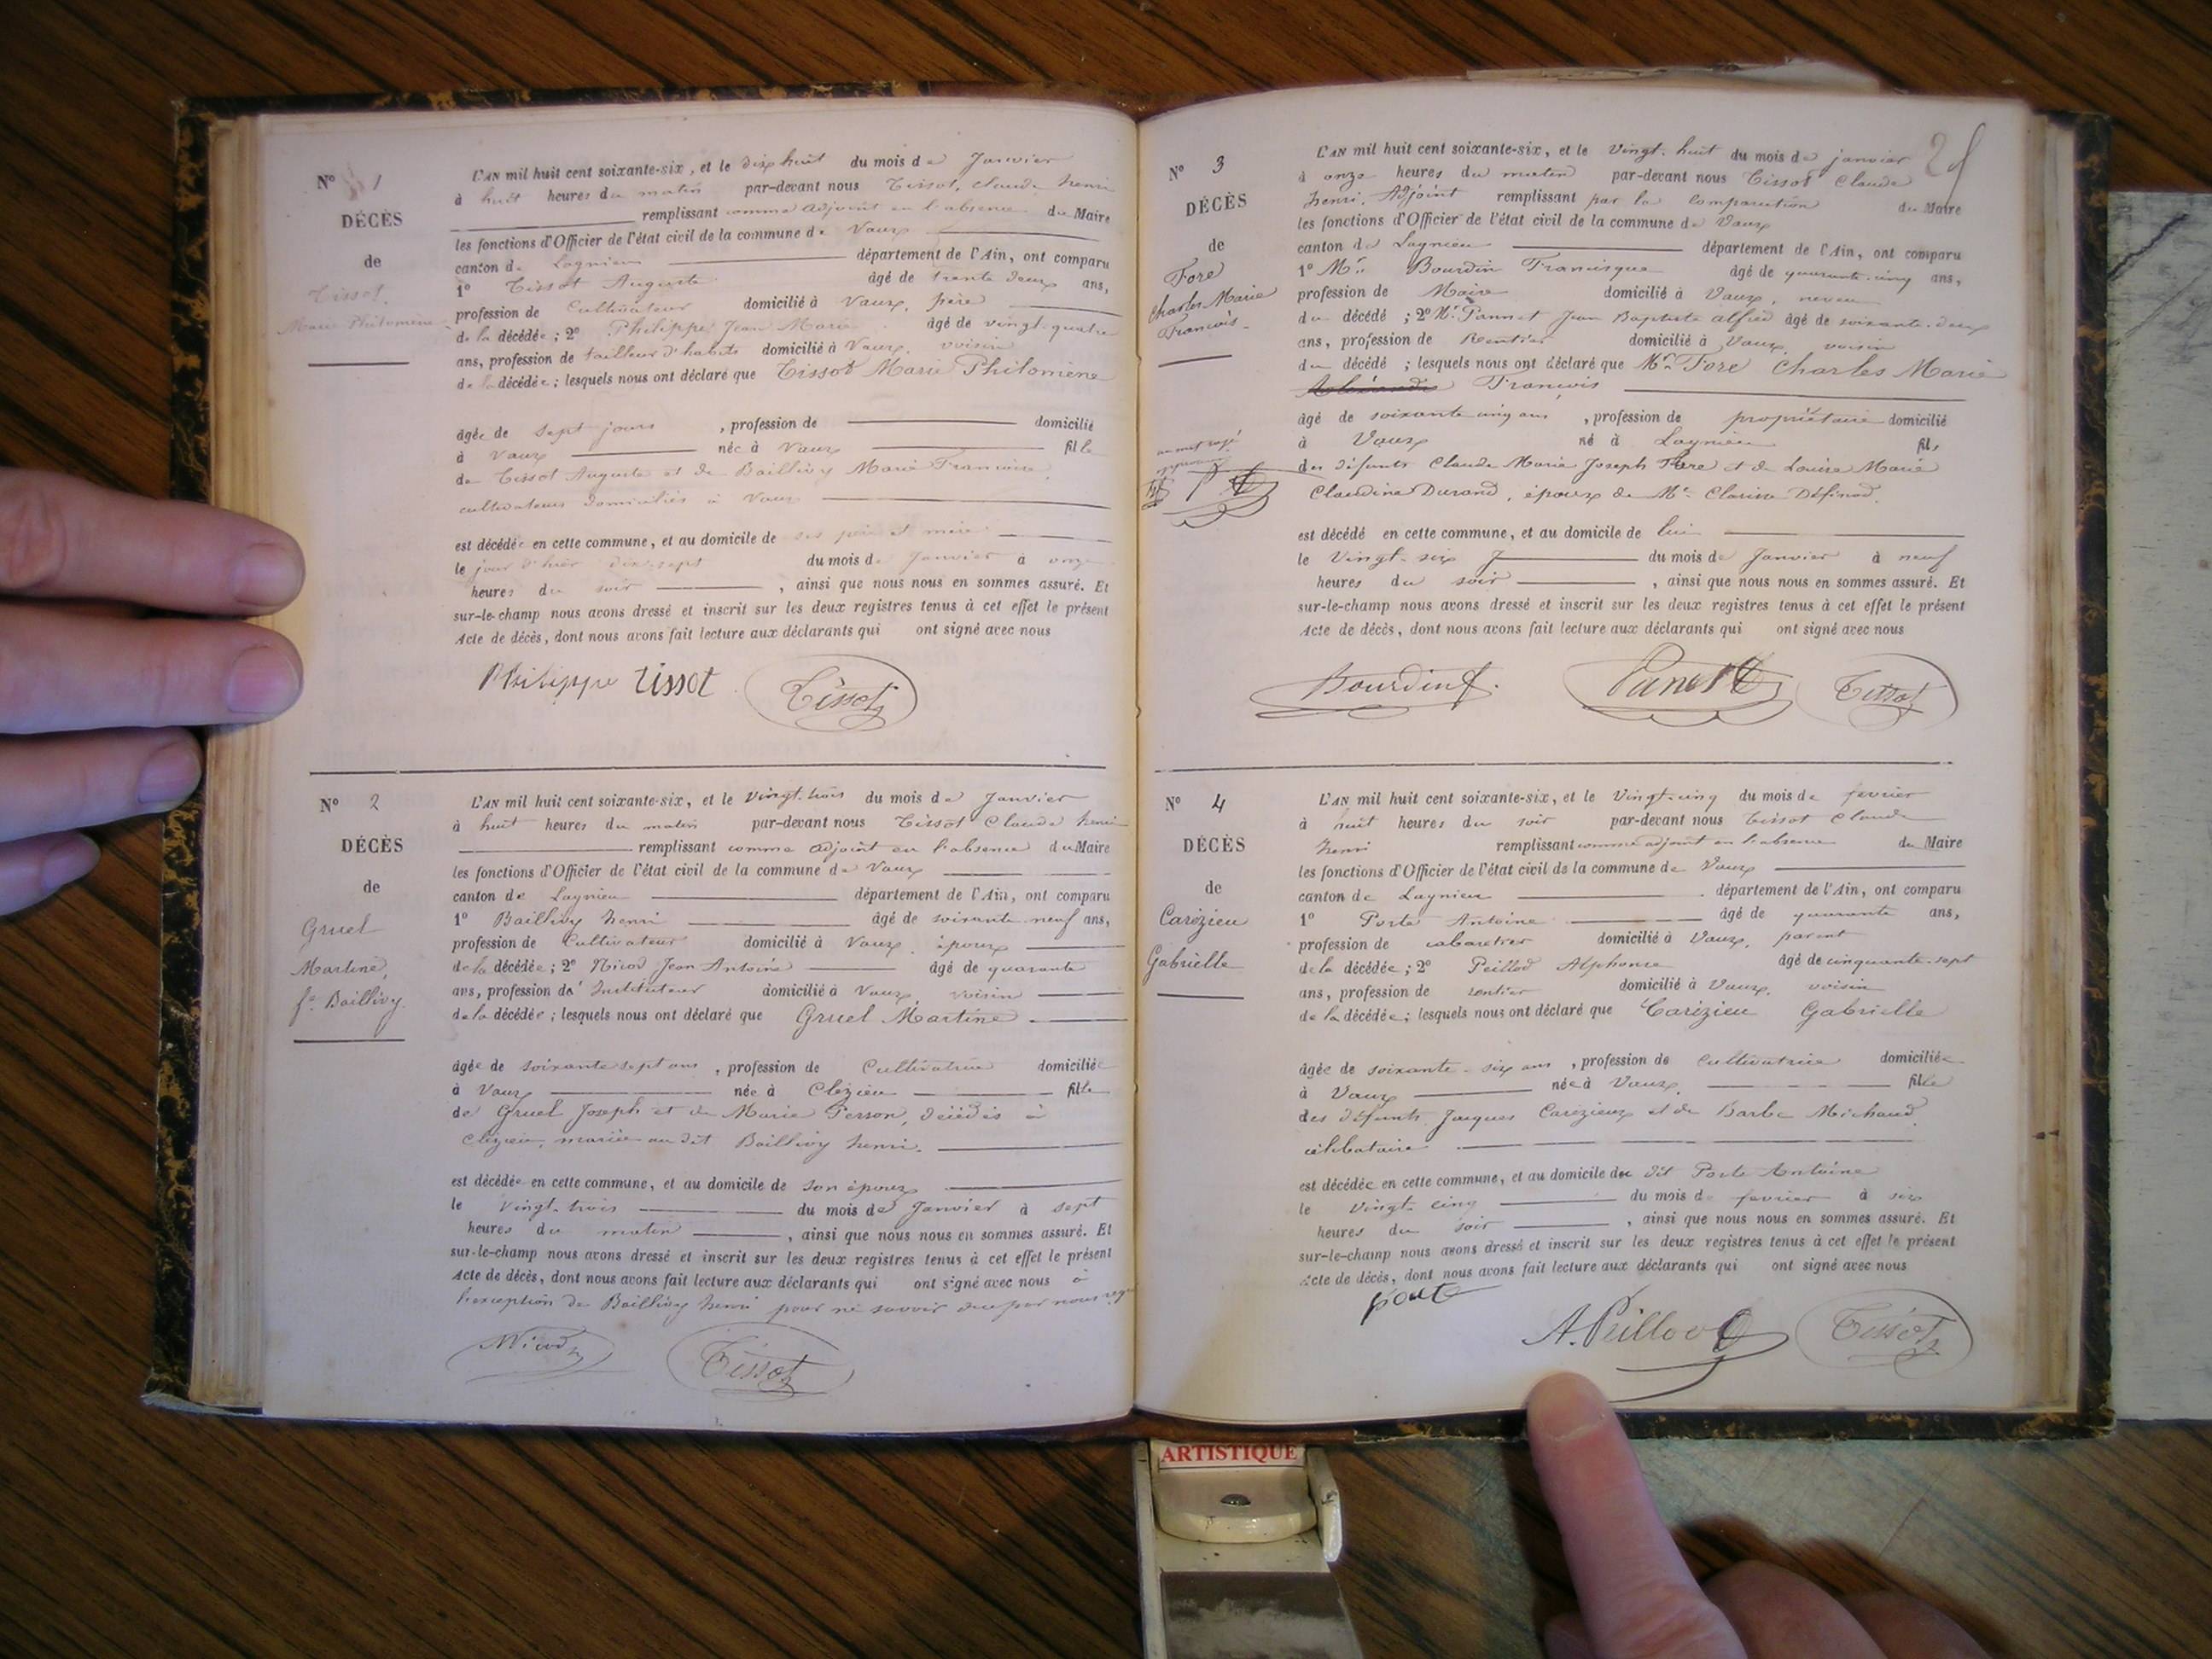 N° 1
DÉCÈS
de
Tissot.
Marie Philomène
L'AN mil huit cent soixante-six, et le dix huit du mois de Janvier
à huit heures du matin par-devant nous Tissot, Claude henri
remplissant comme adjoint en l'absence du Maire
les fonctions d'Officier de l'état civil de la commune de Vaux
canton de Lagnieu département de l'Ain, ont comparu
1° Tissot Auguste âgé de trente deux ans,
profession de Cultivateur domicilié à Vaux, père
de la décédée ; 2° Philippe Jean Marie âgé de vingt-quatre
ans, profession de tailleur d'habits domicilié à Vaux, voisin
de la décédée ; lesquels nous ont déclaré que Tissot Marie Philomène
âgée de sept jours , profession de domicilié
à Vaux née à Vaux fille
de Tissot Auguste et de Baillivy Marie Francoise
cultivateurs domiciliés à Vaux
est décédée en cette commune, et au domicile de ses père et mère
le jour d'hier dix-sept du mois de Janvier à onze
heures du soir , ainsi que nous nous en sommes assuré. Et
sur-le-champ nous avons dressé et inscrit sur les deux registres tenus à cet effet le présent
Acte de décès, dont nous avons fait lecture aux déclarants qui ont signé avec nous
Philippe Tissot Tissot
N° 2
DÉCÈS
de
Gruel
Martine,
fe Baillivy.
L'AN mil huit cent soixante-six, et le Vingt-trois du mois de Janvier
à huit heures du matin par-devant nous Tissot Claude henri
remplissant comme adjoint en l'absence du Maire
les fonctions d'Officier de l'état civil de la commune de Vaux
canton de Lagnieu département de l'Ain, ont comparu
1° Baillivy henri âgé de soixante-neuf ans,
profession de Cultivateur domicilié à Vaux, époux
de la décédée ; 2° Nicod Jean Antoine âgé de quarante
ans, profession de Instituteur domicilié à Vaux, voisin
de la décédée ; lesquels nous ont déclaré que Gruel Martine
âgée de soixante sept ans , profession de Cultivatrice domiciliée
à Vaux née à Cleyzieu fille
de Gruel Joseph et de Marie Person, décédés à
Cleyzieu, mariée au dit Baillivy henri.
est décédée en cette commune, et au domicile de son époux
le vingt-trois du mois de Janvier à sept
heures du matin , ainsi que nous nous en sommes assuré. Et
sur-le-champ nous avons dressé et inscrit sur les deux registres tenus à cet effet le présent
Acte de décès, dont nous avons fait lecture aux déclarants qui ont signé avec nous à
l'exception de Baillivy henri pour ne savoir de par nous req
Nicod Tissot
28
N° 3
DÉCÈS
de
Fore
Charles Marie
François
un mot rayé
L'AN mil huit cent soixante-six, et le Vingt-huit du mois de janvier
à onze heures du matin par-devant nous Tissot Claude
henri, Adjoint remplissant par la comparution du Maire
les fonctions d'Officier de l'état civil de la commune de Vaux
canton de Lagnieu département de l'Ain, ont comparu
1° Mr. Bourdin Francisque âgé de quarante-cinq ans,
profession de Maire domicilié à Vaux, neveu
du décédé ; 2° Mr. Pannet Jean Baptiste alfred âgé de soixante-deux
ans, profession de Rentier domicilié à Vaux, voisin
du décédé ; lesquels nous ont déclaré que Mr. Fore Charles Marie
François
âgé de soixante cinq ans , profession de propriétaire domicilié
à Vaux né à Lagnieu fils
des défunts Claude Marie Joseph Fore et de Louise Marie
Claudine Durand, époux de Me. Clarisse Définod.
est décédé en cette commune, et au domicile de lui
le Vingt-six du mois de Janvier à neuf
heures du soir , ainsi que nous nous en sommes assuré. Et
sur-le-champ nous avons dressé et inscrit sur les deux registres tenus à cet effet le présent
Acte de décès, dont nous avons fait lecture aux déclarants qui ont signé avec nous
Bourdin f. Panet Tissot
N° 4
DÉCÈS
de
Carézieu
Gabrielle
L'AN mil huit cent soixante-six, et le Vingt-cinq du mois de fevrier
à huit heures du soir par-devant nous Tissot Claude
henri remplissant comme adjoint en l'absence du Maire
les fonctions d'Officier de l'état civil de la commune de Vaux
canton de Lagnieu département de l'Ain, ont comparu
1° Porte Antoine âgé de quarante ans,
profession de cabaretier domicilié à Vaux, parent
de la décédée ; 2° Peillod Alphonse âgé de cinquante-sept
ans, profession de rentier domicilié à Vaux, voisin
de la décédée ; lesquels nous ont déclaré que Carézieu Gabrielle
âgée de soixante-six ans , profession de cultivatrice domiciliée
à Vaux née à Vaux, fille
des défunts Jacques Carézieux et de Barbe Michaud
célibataire
est décédée en cette commune, et au domicile du dit Porte Antoine
le vingt-cinq du mois de fevrier à six
heures du soir , ainsi que nous nous en sommes assuré. Et
sur-le-champ nous avons dressé et inscrit sur les deux registres tenus à cet effet le présent
Acte de décès, dont nous avons fait lecture aux déclarants qui ont signé avec nous
porte
A. Peillod Tissot
ARTISTIQUE